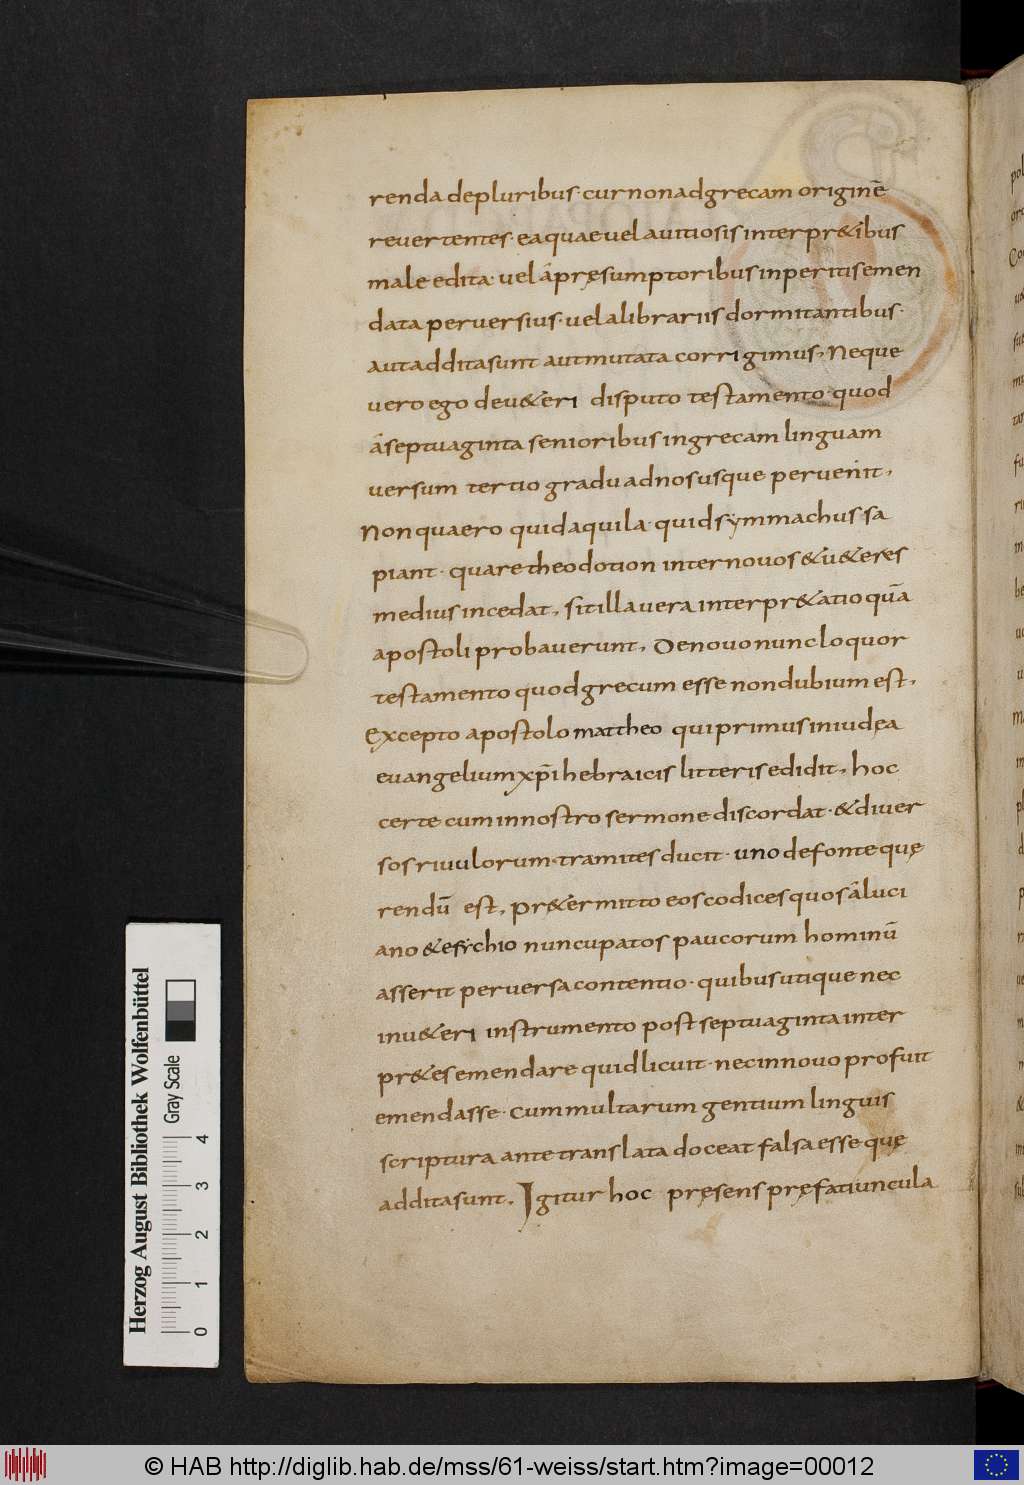 renda depluribus· cur non adgrecam originē
reuertentes· ea quae uel autiosis interpr&ibus
male edita· uel apręsumptoribus inperitis emen
data peruersius· uel alibrariis dormitantibus·
aut addita sunt aut mutata corrigimus, Neque
uero ego deu&eri disputo testamento· quod
aseptuaginta senioribus in grecam linguam
uersum tertio gradu ad nos usque peruenit,
Non quaero quid aquila· quid symmachus sa
piant· quare theodotion inter nouos & u&eres
medius incedat, sit illa uera interpr&atio quā
apostoli probauerunt, De nouo nunc loquor
testamento quod grecum esse non dubium est,
Excepto apostolo mattheo qui primus in iudęa
euangelium xp̄i hebraicis litteris edidit, hoc
certe cum in nostro sermone discordat· & diuer
sos riuulorum tramites ducit· uno de fonte quę
rendū est, pr&ermitto eos codices quos aluci
ano & esychio nuncupatos paucorum hominū
asserit peruersa contentio· quibus utique nec
in u&eri instrumento post septuaginta inter
pr&es emendare quid licuit· nec in nouo profuit
emendasse· cum multarum gentium linguis
scriptura ante translata doceat falsa esse quę
addita sunt, Igitur hoc pręsens pręfatiuncula
Herzog August Bibliothek Wolfenbüttel
Gray Scale
0 1 2 3 4
© HAB http://diglib.hab.de/mss/61-weiss/start.htm?image=00012